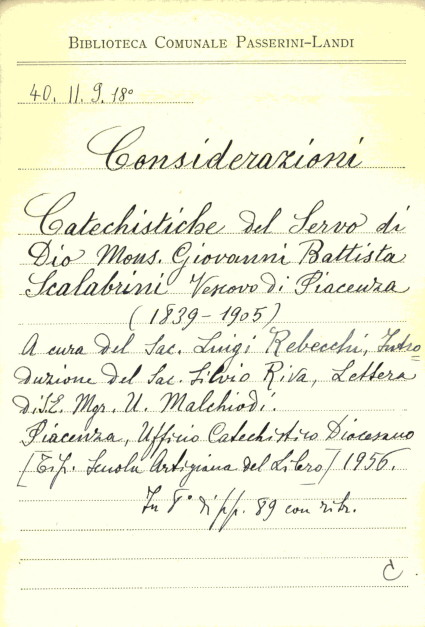 BIBLIOTECA COMUNALE PASSERINI-LANDI
40. II. 9. 18°
Considerazioni
Catechistiche del Servo di
Dio Mons. Giovanni Battista
Scalabrini Vescovo di Piacenza
(1839-1905)
A cura del Sac. Luigi Rebecchi, Intro=
duzione del Sac. Silvio Riva, Lettera
di S.E. Mgr. U. Malchiodi.
Piacenza, Ufficio Catechistico Diocesano
[Tip. Scuola Artigiana del Libro] 1956.
In 8° di pp. 89 con ritr.
C